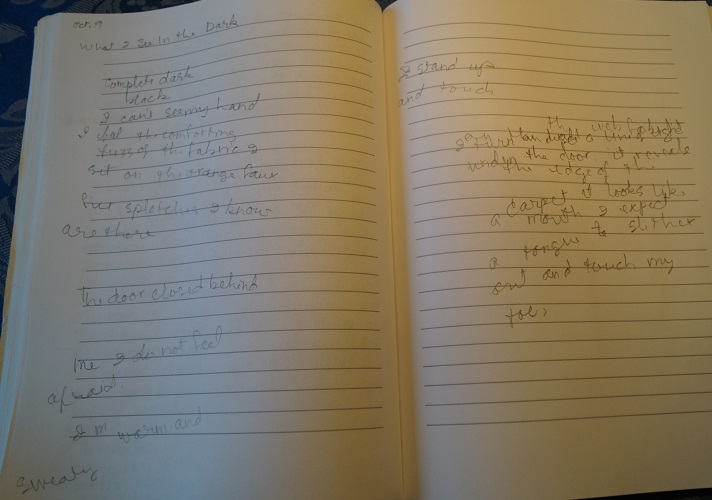 Oct. 9
What I See In the Dark
complete dark
black
I can't see my hand
I feel the comforting
fuzz of the fabric I
sit on the orange faux
fur splotches I know
are there
The door closed behind
me I do not feel
afraid.
I'm warm and
sweaty
I stand up
and touch
the
light
under the door. it reveals
the edge of the
carpet it looks like
a mouth I expect
a to slither
tongue
out and touch my
toe,